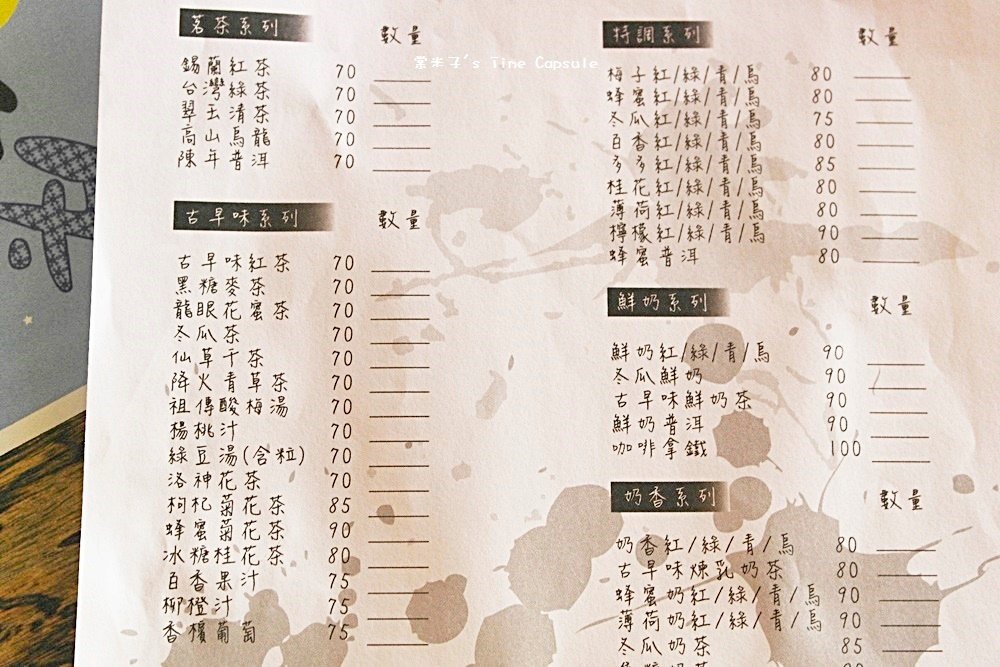 茗茶系列 數量
錫蘭紅茶 70
台灣綠茶 70
翠玉清茶 70
高山烏龍 70
陳年普洱 70
古早味系列 數量
古早味紅茶 70
黑糖麥茶 70
龍眼花蜜茶 70
冬瓜茶 70
仙草干茶 70
降火青草茶 70
祖傳酸梅湯 70
楊桃汁 70
綠豆湯(含粒) 70
洛神花茶 70
枸杞菊花茶 85
蜂蜜菊花茶 90
冰糖桂花茶 80
百香果汁 75
柳橙汁 75
香檳葡萄 75
紫米子's Time Capsule
特調系列 數量
梅子紅/綠/青/烏 80
蜂蜜紅/綠/青/烏 80
冬瓜紅/綠/青/烏 75
百香紅/綠/青/烏 80
多多紅/綠/青/烏 85
桂花紅/綠/青/烏 80
薄荷紅/綠/青/烏 80
檸檬紅/綠/青/烏 90
蜂蜜普洱 80
鮮奶系列 數量
鮮奶紅/綠/青/烏 90
冬瓜鮮奶 90
古早味鮮奶茶 90
鮮奶普洱 90
咖啡拿鐵 100
奶香系列 數量
奶香紅/綠/青/烏 80
古早味煉乳奶茶 80
蜂蜜奶紅/綠/青/烏 90
薄荷奶紅/綠/青/烏 90
冬瓜奶茶 85